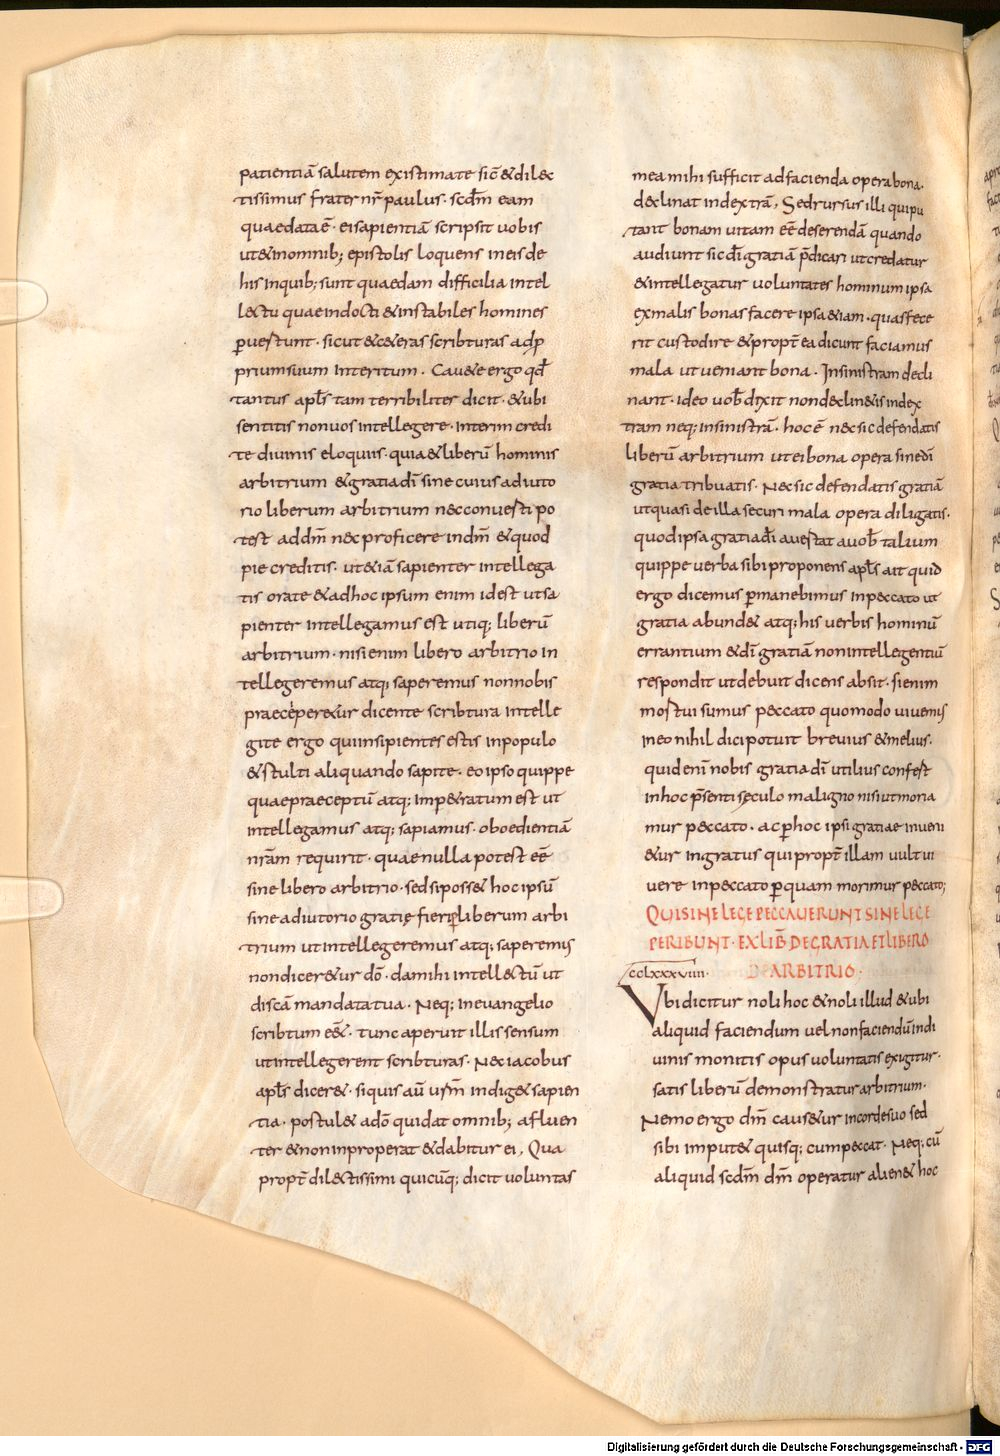 patientiā salutem existimate sic̄ & dilec
tissimus frater nr̄ paulus. scdm̄ eam
quae data ē. ei sapientiā scripsit uobis
ut & in omnib; epistolis loquens in eis de
his inquib; sunt quaedam difficilia intel
lectu quae indocti & instabiles homines
ꝑuertunt. sicut & c&eras scribturas ad ꝓ
prium suum interitum. Cau&e ergo qd̄
tantus apl̄s tam terribiliter dicit. & ubi
sentitis non uos intellegere. interim credi
te diuinis eloquiis. quia & liberū hominis
arbitrium & gratia dī sine cuius adiuto
rio liberum arbitrium nec conuerti po
test ad dm̄ nec proficere in dm̄ & quod
pie creditis. ut &iā sapienter intellega
tis orate & ad hoc ipsum enim id est ut sa
pienter intellegamus est utiq; liberū
arbitrium. nisi enim libero arbitrio in
tellegeremus atq; saperemus non nobis
praeciper&ur dicente scribtura intelle
gite ergo qui insipientes estis in populo
& stulti aliquando sapite. eo ipso quippe
quae praeceptū atq; imp&ratum est ut
intellegamus atq; sapiamus. oboedientiā
nr̄am requirit. quae nulla potest eē
sine libero arbitrio. sed si poss& hoc ipsū
sine adiutorio gratię fieri ꝑ liberum arbi
trium ut intellegeremus atq; saperemus
non dicer&ur dō. da mihi intellectū ut
discā mandata tua. Neq; in euangelio
scribtum eē&. tunc aperuit illis sensum
ut intellegerent scribturas. Nec iacobus
apl̄s dicer&. si quis aū ur̄m indig& sapien
tia. postul& a dō qui dat omnib; affluen
ter & non inproperat & dabitur ei, Qua
propt̄ dilectissimi quicūq; dicit uoluntas
mea mihi sufficit ad facienda opera bona.
declinat in dextrā, Sed rursus illi qui pu
tant bonam uitam eē deserendā quando
audiunt sic dī gratiā p̄dicari ut credatur
& intellegatur uoluntates hominum ipsa
ex malis bonas facere ipsa &iam. quas fece
rit custodire & propt̄ ea dicunt faciamus
mala ut ueniant bona. In sinistram decli
nant. ideo uob̄ dixit non declin&is in dex
tram neq; in sinistrā. hoc ē nec sic defendatis
liberū arbitrium ut ei bona opera sine dī
gratia tribuatis. Nec sic defendatis gratiā
ut quasi de illa securi mala opera diligatis.
quod ipsa gratia dī auertat a uob̄ talium
quippe uerba sibi proponens apl̄s ait quid
ergo dicemus ꝑmanebimus in peccato ut
gratia abund& atq; his uerbis hominū
errantium & dī gratiā non intellegentiū
respondit ut debuit dicens absit. si enim
mortui sumus peccato quomodo uiuemus
in eo nihil dici potuit breuius & melius.
quid enī nobis gratia dī utilius confert
in hoc p̄senti sęculo maligno nisi ut moria
mur peccato. ac ꝑ hoc ipsi gratiae inueni
&ur ingratus qui propt̄ illam uult ui
uere in peccato ꝑ quam morimur peccato;
QUI SINE LEGE PECCAVERUNT SINE LEGE
PERIBUNT. EX LIB̄ DE GRATIA ET LIBERO
ARBITRIO.
CCLXXXVIIII.
Vbi dicitur noli hoc & noli illud & ubi
aliquid faciendum uel non faciendū in di
uinis monitis opus uoluntatis exigitur.
satis liberū demonstratur arbitrium.
Nemo ergo dm̄ caus&ur in corde suo sed
sibi imput& quisq; cum peccat. Neq; cū
aliquid scdm̄ dm̄ operatur alien& hoc
Digitalisierung gefördert durch die Deutsche Forschungsgemeinschaft - DFG